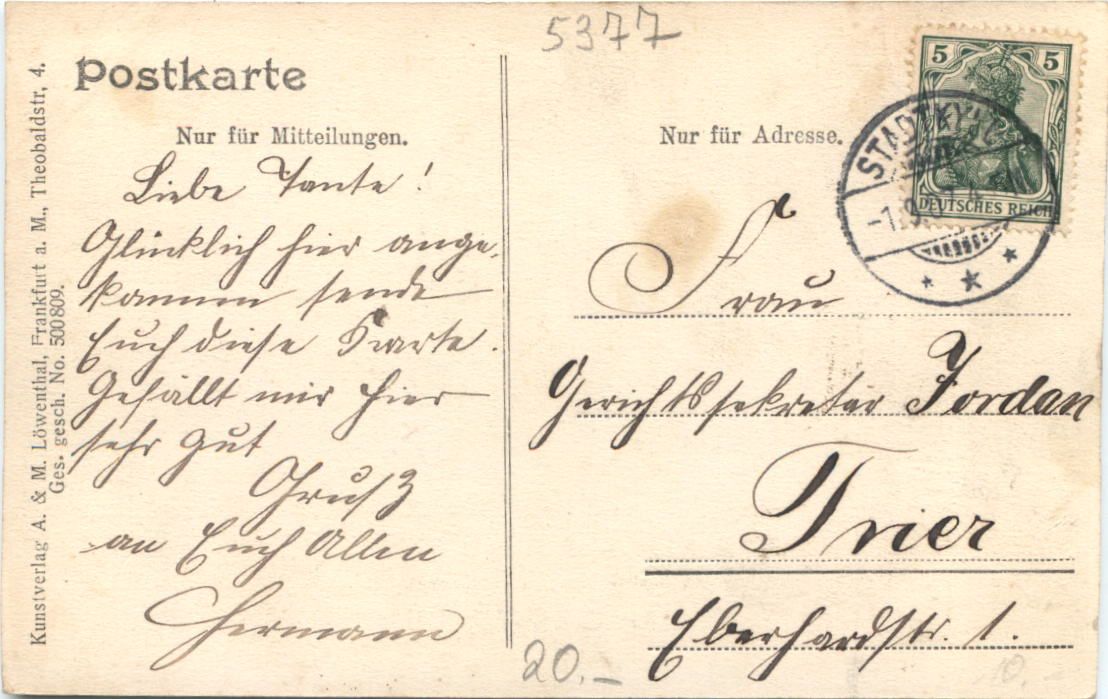 5377
Postkarte
Nur für Mitteilungen.
Liebe Tante!
Glücklich hier ange-
kommen sende
Euch diese Karte.
Gefällt mir hier
sehr gut
Gruß
an Euch Allen
Hermann
Kunstverlag A. & M. Löwenthal, Frankfurt a. M., Theobaldstr, 4.
Ges. gesch. No. 500809.
Nur für Adresse.
5 5
DEUTSCHES REICH
STADTKYLL
Frau
Gerichtssekretär Jordan
Trier
Eberhardstr. 1.
20.-
10.-